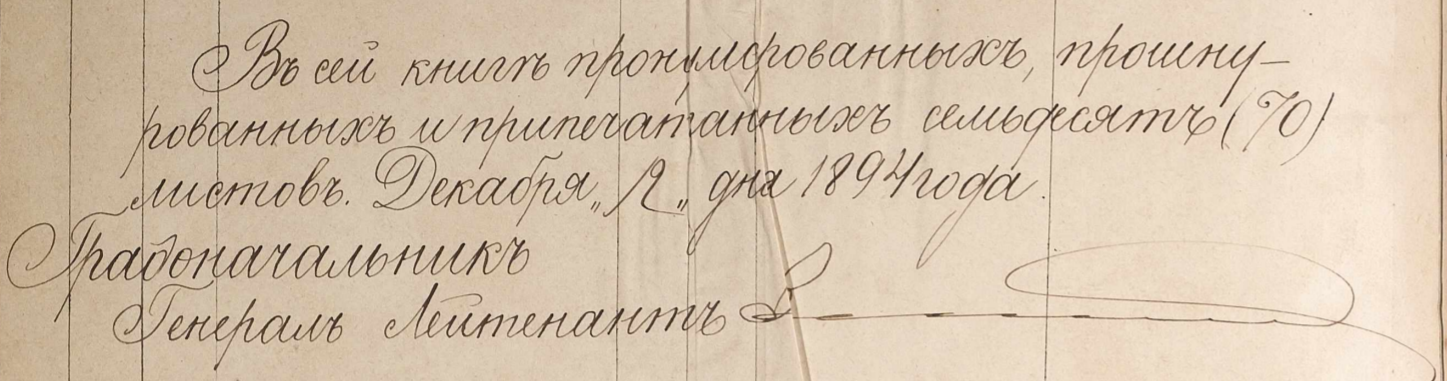 Въ сей книгѣ пронумерованныхъ, прошну-
рованныхъ и припечатанныхъ семьдесятъ (70)
листовъ. Декабря „ 2 „ дня 1894 года.
Градоначальникъ
Генералъ Лейтенантъ